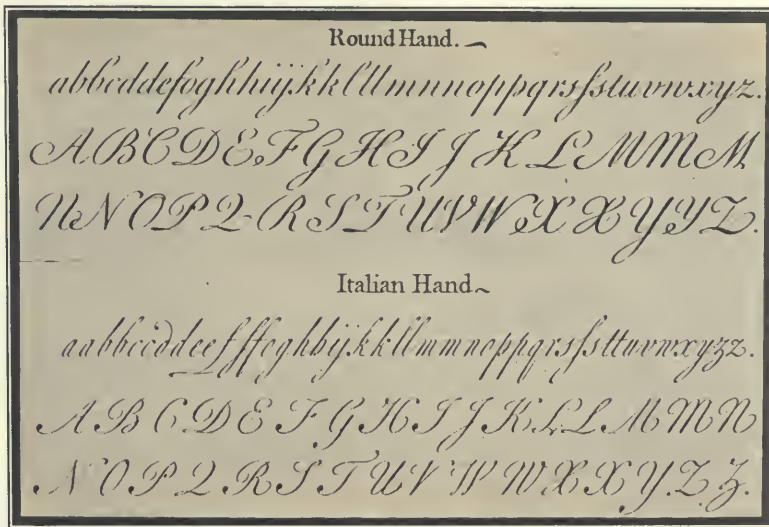 Round Hand.
abbcddefoghhiijkklllmnnoppqrsſstuvwxyz.
A B C D E F G H I J K L M M M
N N O P Q R S T U V W X X Y Y Z.
Italian Hand
aabbccddeefffoghhijkkllmmnoppqrsſsttuvwxyzz.
A B C D E F G H I J K L L M M N
N O P Q R S T U V W W X X Y Z Z.